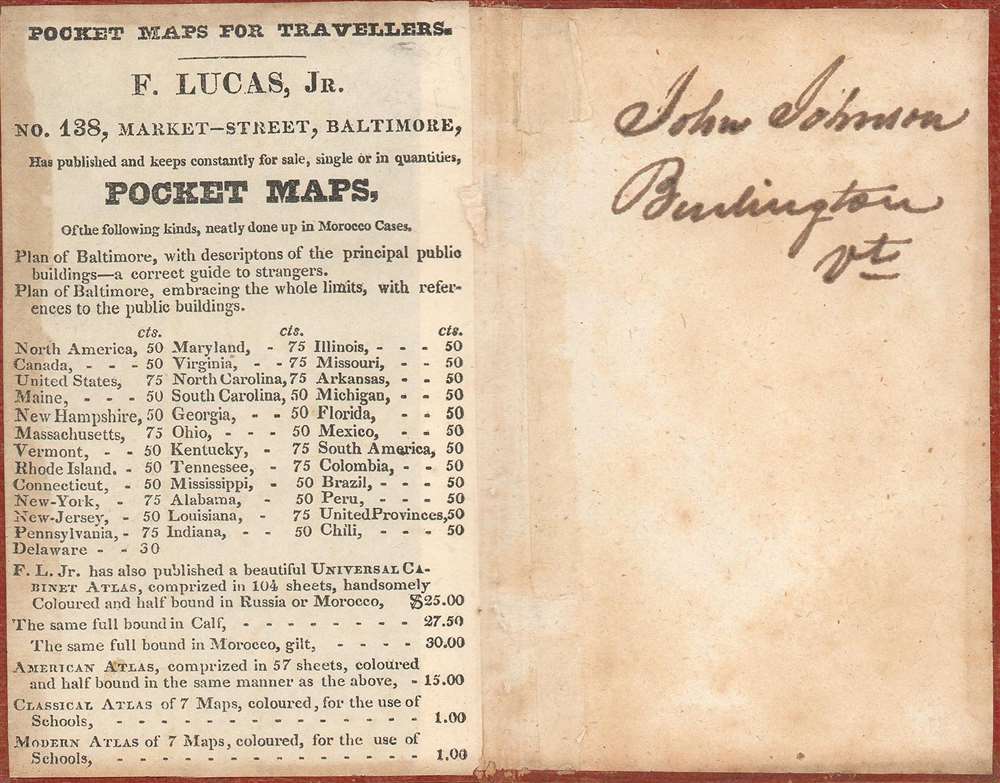 POCKET MAPS FOR TRAVELLERS.
F. LUCAS, JR.
NO. 138, MARKET-STREET, BALTIMORE,
Has published and keeps constantly for sale, single or in quantities,
POCKET MAPS,
Of the following kinds, neatly done up in Morocco Cases.
Plan of Baltimore, with descriptons of the principal public
buildings—a correct guide to strangers.
Plan of Baltimore, embracing the whole limits, with refer-
ences to the public buildings.
cts. cts. cts.
North America, 50 Maryland, - 75 Illinois, - - - 50
Canada, - - - 50 Virginia, - - 75 Missouri, - - 50
United States, 75 North Carolina, 75 Arkansas, - - 50
Maine, - - - 50 South Carolina, 50 Michigan, - - 50
New Hampshire, 50 Georgia, - - 50 Florida, - - 50
Massachusetts, 75 Ohio, - - - 50 Mexico, - - 50
Vermont, - - 50 Kentucky, - 75 South America, 50
Rhode Island. - 50 Tennessee, - 75 Colombia, - - 50
Connecticut, - 50 Mississippi, - 50 Brazil, - - - 50
New-York, - 75 Alabama, - 50 Peru, - - - 50
New-Jersey, - 50 Louisiana, - 75 United Provinces, 50
Pennsylvania, - 75 Indiana, - - 50 Chili, - - - 50
Delaware - - 30
F. L. Jr. has also published a beautiful UNIVERSAL CA-
BINET ATLAS, comprized in 104 sheets, handsomely
Coloured and half bound in Russia or Morocco, $25.00
The same full bound in Calf, - - - - - - - - 27.50
The same full bound in Morocco, gilt, - - - - 30.00
AMERICAN ATLAS, comprized in 57 sheets, coloured
and half bound in the same manner as the above, - 15.00
CLASSICAL ATLAS of 7 Maps, coloured, for the use of
Schools, - - - - - - - - - - - - - - 1.00
MODERN ATLAS of 7 Maps, coloured, for the use of
Schools, - - - - - - - - - - - - - - 1.00
John Johnson
Burlington
Vt